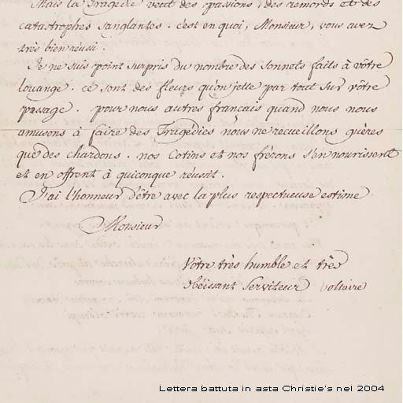 Mais la Tragedie veut des passions, des remords et des
catastrophes sanglantes. c'est en quoi, Monsieur, vous avez
très bien réussi.
Je ne suis point surpris du nombre des Sonnets faits à vôtre
louange. ce sont des fleurs qu'on jette par tout sur vôtre
passage. pour nous autres français quand nous nous
amusons à faire des Tragédies nous ne recueillons guères
que des chardons. nos Cotins et nos frérons s'en nourissent
et en offrent à quiconque réussit.
J'ai l'honneur d'être avec la plus respectueuse estime
Monsieur
Votre très humble et très
obéissant serviteur Voltaire
Lettera battuta in asta Christie's nel 2004